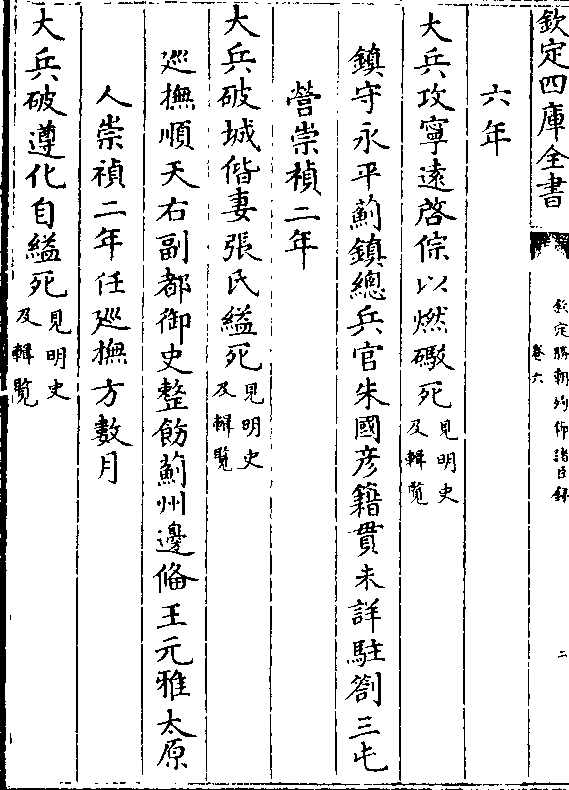 欽定四庫全書
欽定勝朝殉節諸臣録
卷六
二
六年
大兵攻寧遠啓倧以燃礮死見明史
及輯覽
鎮守永平薊鎮總兵官朱國彦籍貫未詳駐劄三屯
營崇禎二年
大兵破城偕妻張氏縊死見明史
及輯覽
廵撫順天右副都御史整飭薊州邊俻王元雅太原
人崇禎二年任廵撫方數月
大兵破遵化自縊死見明史
及輯覽